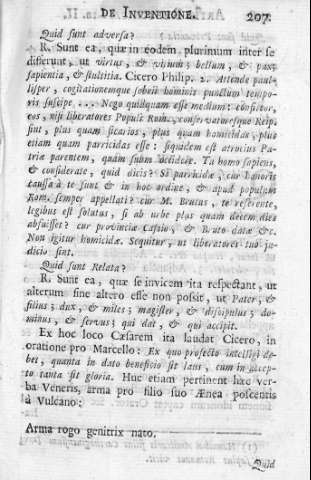 DE INVENTIONE. 207
Quid sunt adversa?
R. Sunt ea, quæ in eodem plurimum inter se
differunt, ut virtus, & vitium; bellum, & pax;
sapientia, & stultitia. Cicero Philip. 2. Attende paul-
lisper, cogitationemque sobrii hominis punctum tempo-
ris suscipe .... Nego quidquam esse medium: confiteor,
eos, nisi liberatores Populi Rom. conservatoresque Reip.
sint, plus quam sicarios, plus quam homicidas, plus
etiam quam parricidas esse: siquidem est atrocius Pa-
triæ parentem, quam suum occidere. Tu homo sapiens,
& considerate, quid dicis? Si parricidæ, cur honoris
caussa à te sunt & in hoc ordine, & apud populum
Rom. semper appellati? cur M. Brutus, te referente,
legibus est solutus, si ab urbe plus quam decem dies
abfuisset? cur provinciæ Cassio, & Bruto datæ &c.
Non igitur homicidæ. Sequitur, ut liberatores tuo ju-
dicio sint.
Quid sunt Relata?
R. Sunt ea, quæ se invicem ita respectant, ut
alterum sine altero esse non possit, ut Pater, &
filius; dux, & miles; magister, & discipulus; do-
minus, & servus; qui dat, & qui accipit.
Ex hoc loco Cæsarem ita laudat Cicero, in
oratione pro Marcello: Ex quo profecto intelligi de-
bet, quanta in dato beneficio sit laus, cum in accep-
to tanta sit gloria. Huc etiam pertinent hæc ver-
ba Veneris, arma pro filio suo Ænea poscentis
à Vulcano:
Arma rogo genitrix nato.
Quid